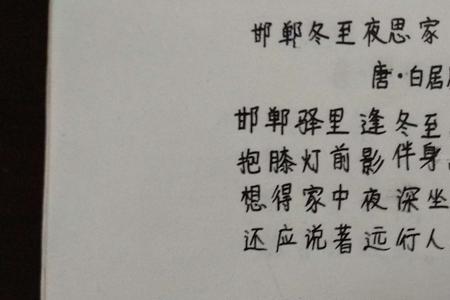 邯郸冬至夜思家
唐·白居
邯郸驿里逢冬至
抱膝灯前影伴身
想得家中夜深坐
还应说著远行人